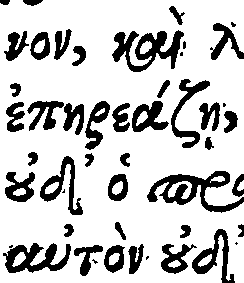 νον, καὶ λ
ἐπηρεάζῃ,
οὐδ' ὁ προ
αὐτὸν οὐδ'